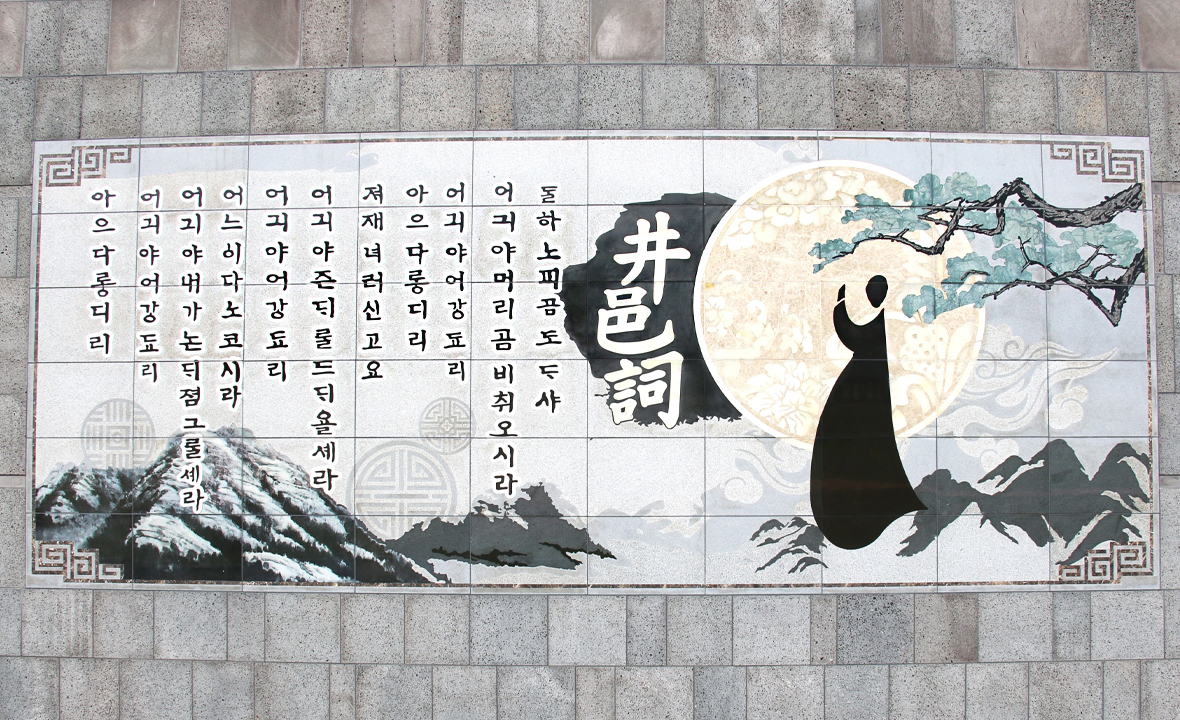 井邑詞
ᄃᆞᆯ하 노피곰 도ᄃᆞ샤
어긔야 머리곰 비취오시라
어긔야 어강됴리
아으 다롱디리
져재 녀러신고요
어긔야 즌ᄃᆡᄅᆞᆯ 드ᄃᆡ욜셰라
어긔야 어강됴리
어느이다 노코시라
어긔야 내 가논 ᄃᆡ 졈그ᄅᆞᆯ셰라
어긔야 어강됴리
아으 다롱디리